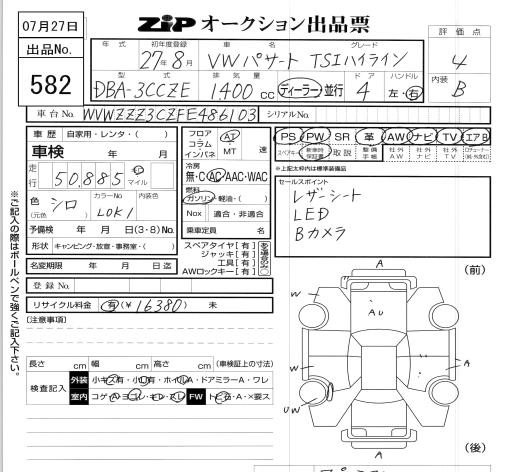 07月27日
ZIP オークション出品票
出品No.
582
年式 初年度登録 車名 グレード
27年8月 VWパサート TSIハイライン
型式 排気量 ドア ハンドル
DBA-3CCZE 1,400 cc ディーラー・並行 4 左・右
評価点
4
内装
B
車台No. WVWZZZ3CZFE486103 シリアルNo.
車歴 自家用・レンタ・( )
車検 年 月
走行 50,885 km マイル
色 (元色) シロ カラーNo LOK1 内装色
予備検 年 月 日(3・8)No.
形状 キャンピング・放宣・事務室・( )
名変期限 年 月 日迄
登録No.
リサイクル料金 有(¥ 16380) 未
フロア コラム インパネ AT MT 速
冷房
無・C・AC・AAC・WAC
燃料
ガソリン・軽油・( )
Nox 適合・非適合
乗車定員 名
スペアタイヤ[有]
ジャッキ[有]
工具[有]
AWロックキー[有]
ある場合のみ○
PS PW SR 革 AW ナビ TV エアB
スペアキー 新車時保証書 取説 整備手帳 社外AW 社外ナビ 社外TV
※上記太枠内は標準装備品
セールスポイント
レザーシート
LED
Bカメラ
※ご記入の際はボールペンで強くご記入下さい。
[注意事項]
長さ cm 幅 cm 高さ cm (車検証上の寸法)
検査記入 外装 小キズ有・小凹有・ホイルA・ドアミラーA・ワレ
室内 コゲA・ヨゴレ・キレ・スレ FW トビ石・A・X要ス
(前)
A
W
AU
W
A
UW
A
(後)